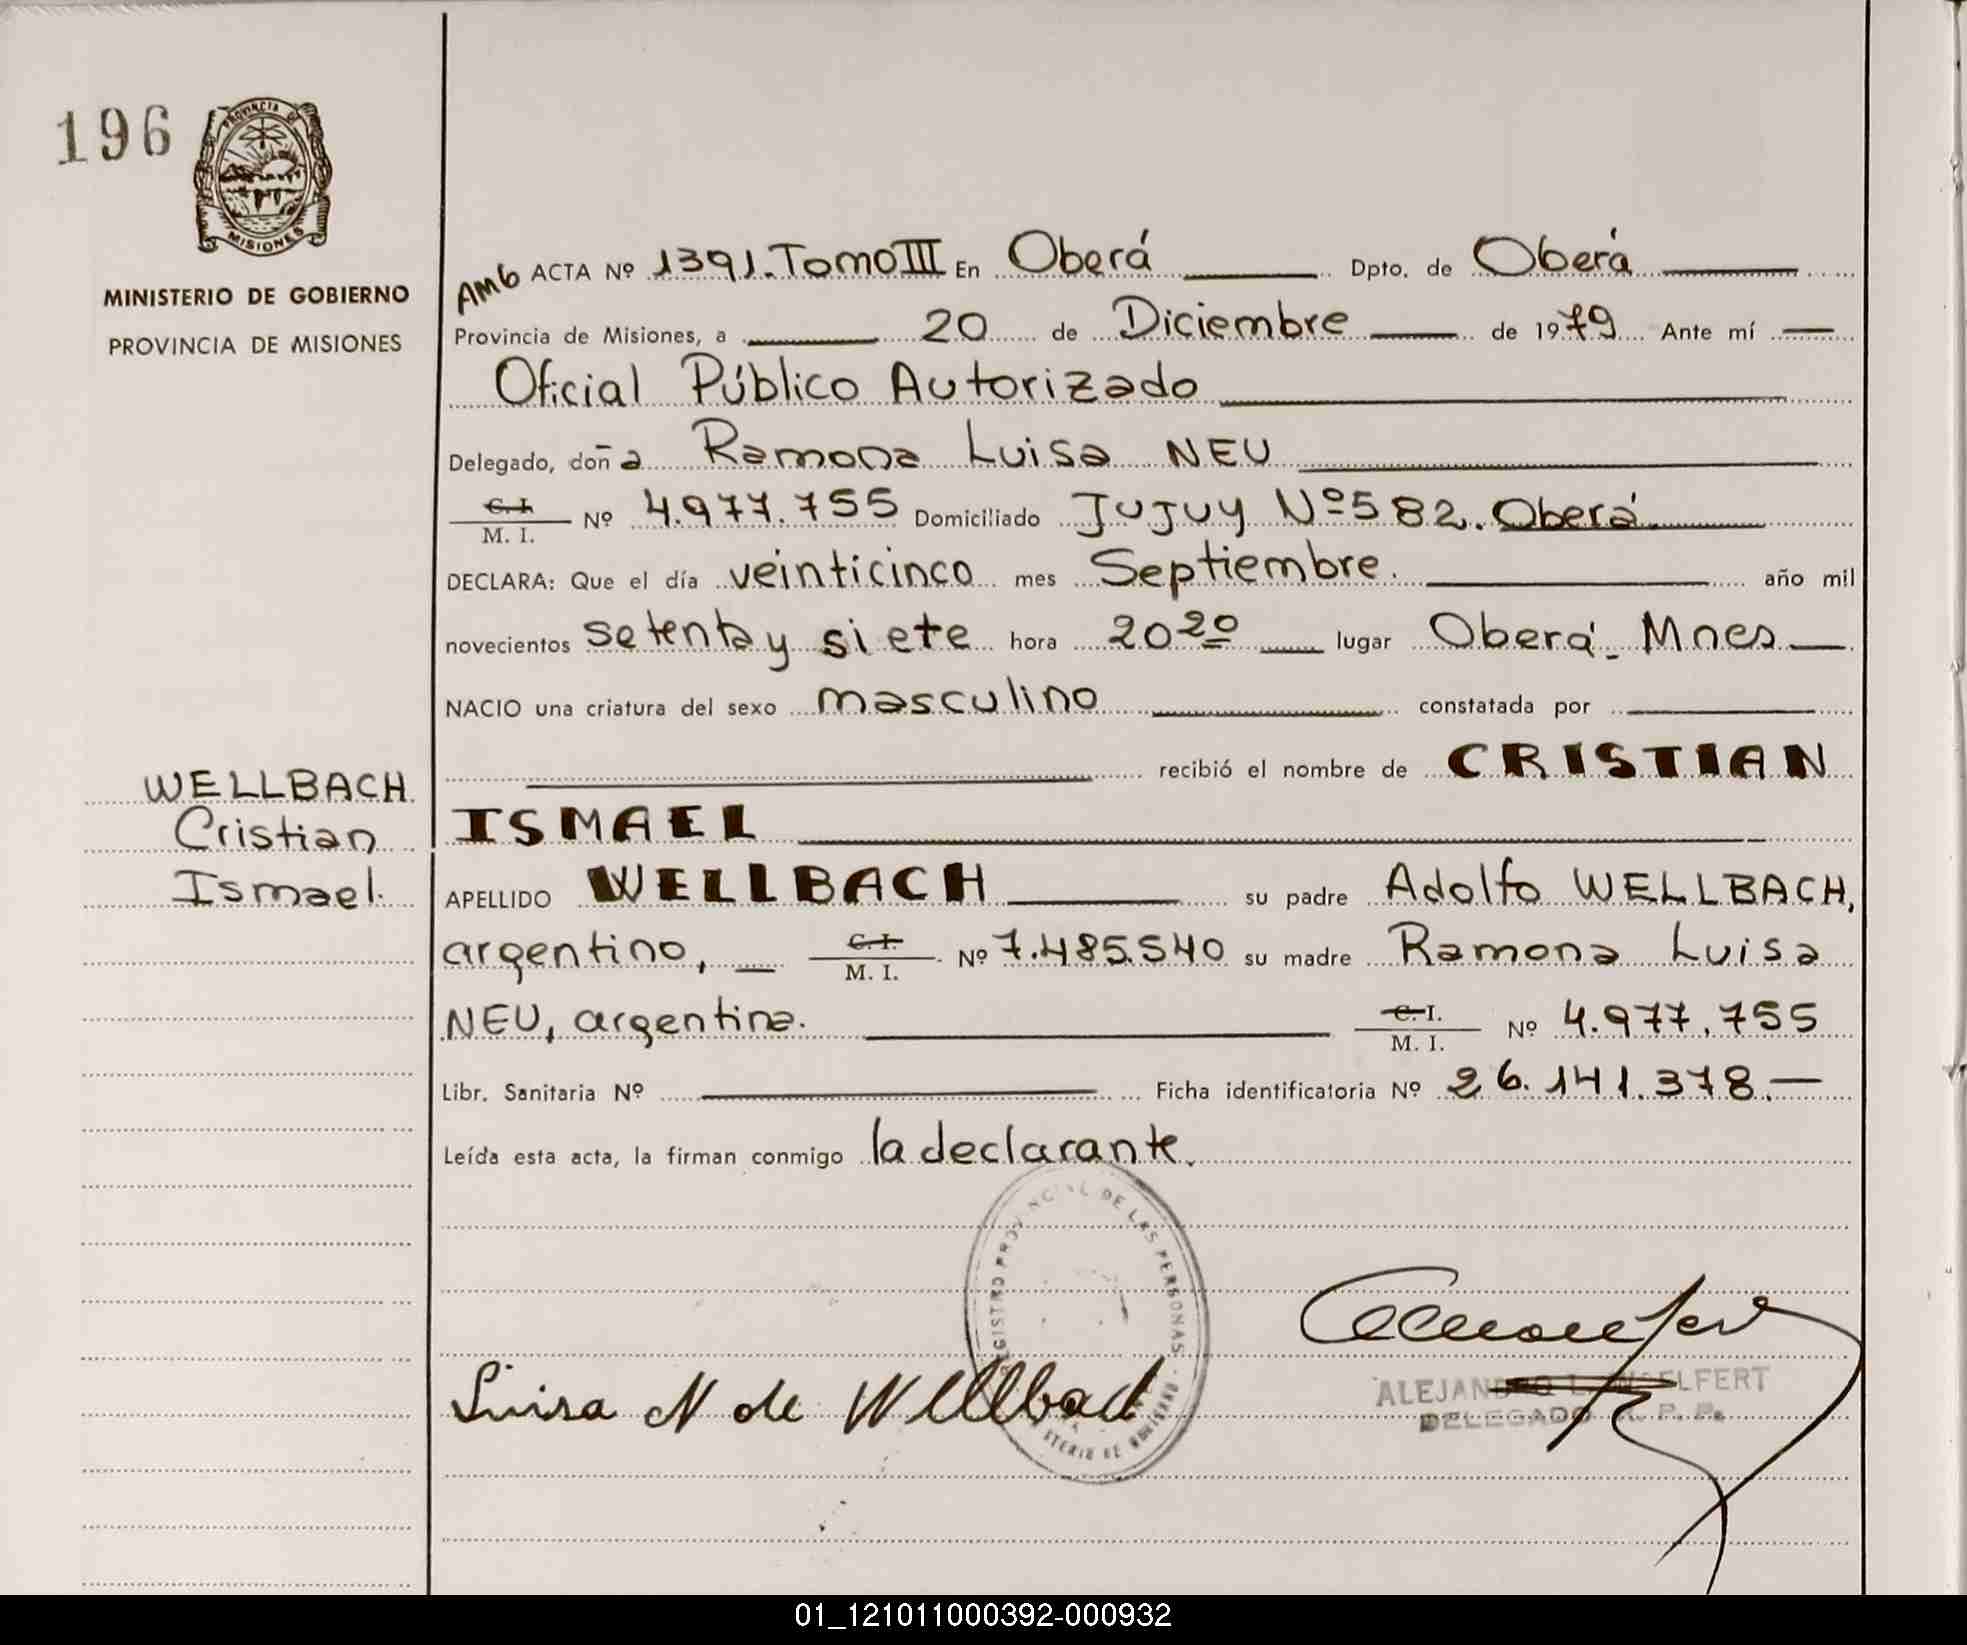 196
PROVINCIA DE
MISIONES
MINISTERIO DE GOBIERNO
PROVINCIA DE MISIONES
AM6 ACTA Nº 1391. Tomo III En Oberá Dpto. de Oberá
Provincia de Misiones, a 20 de Diciembre de 1979 Ante mí
Oficial Público Autorizado
Delegado, doña Ramona Luisa NEU
C. I. / M. I. Nº 4.977.755 Domiciliado Jujuy Nº 582. Oberá
DECLARA: Que el día veinticinco mes Septiembre. año mil
novecientos setenta y siete hora 20 20 lugar Oberá - Mnes
NACIO una criatura del sexo masculino constatada por
recibió el nombre de CRISTIAN
ISMAEL
WELLBACH
Cristian
Ismael.
APELLIDO WELLBACH su padre Adolfo WELLBACH,
argentino, C. I. / M. I. Nº 7.485.540 su madre Ramona Luisa
NEU, argentina. C. I. / M. I. Nº 4.977.755
Libr. Sanitaria Nº Ficha identificatoria Nº 26.141.378.
Leída esta acta, la firman conmigo la declarante.
REGISTRO PROVINCIAL DE LAS PERSONAS
Luisa N de Wellbach
ALEJANDRO L. WOELFERT
DELEGADO R. P. P.
01_121011000392-000932